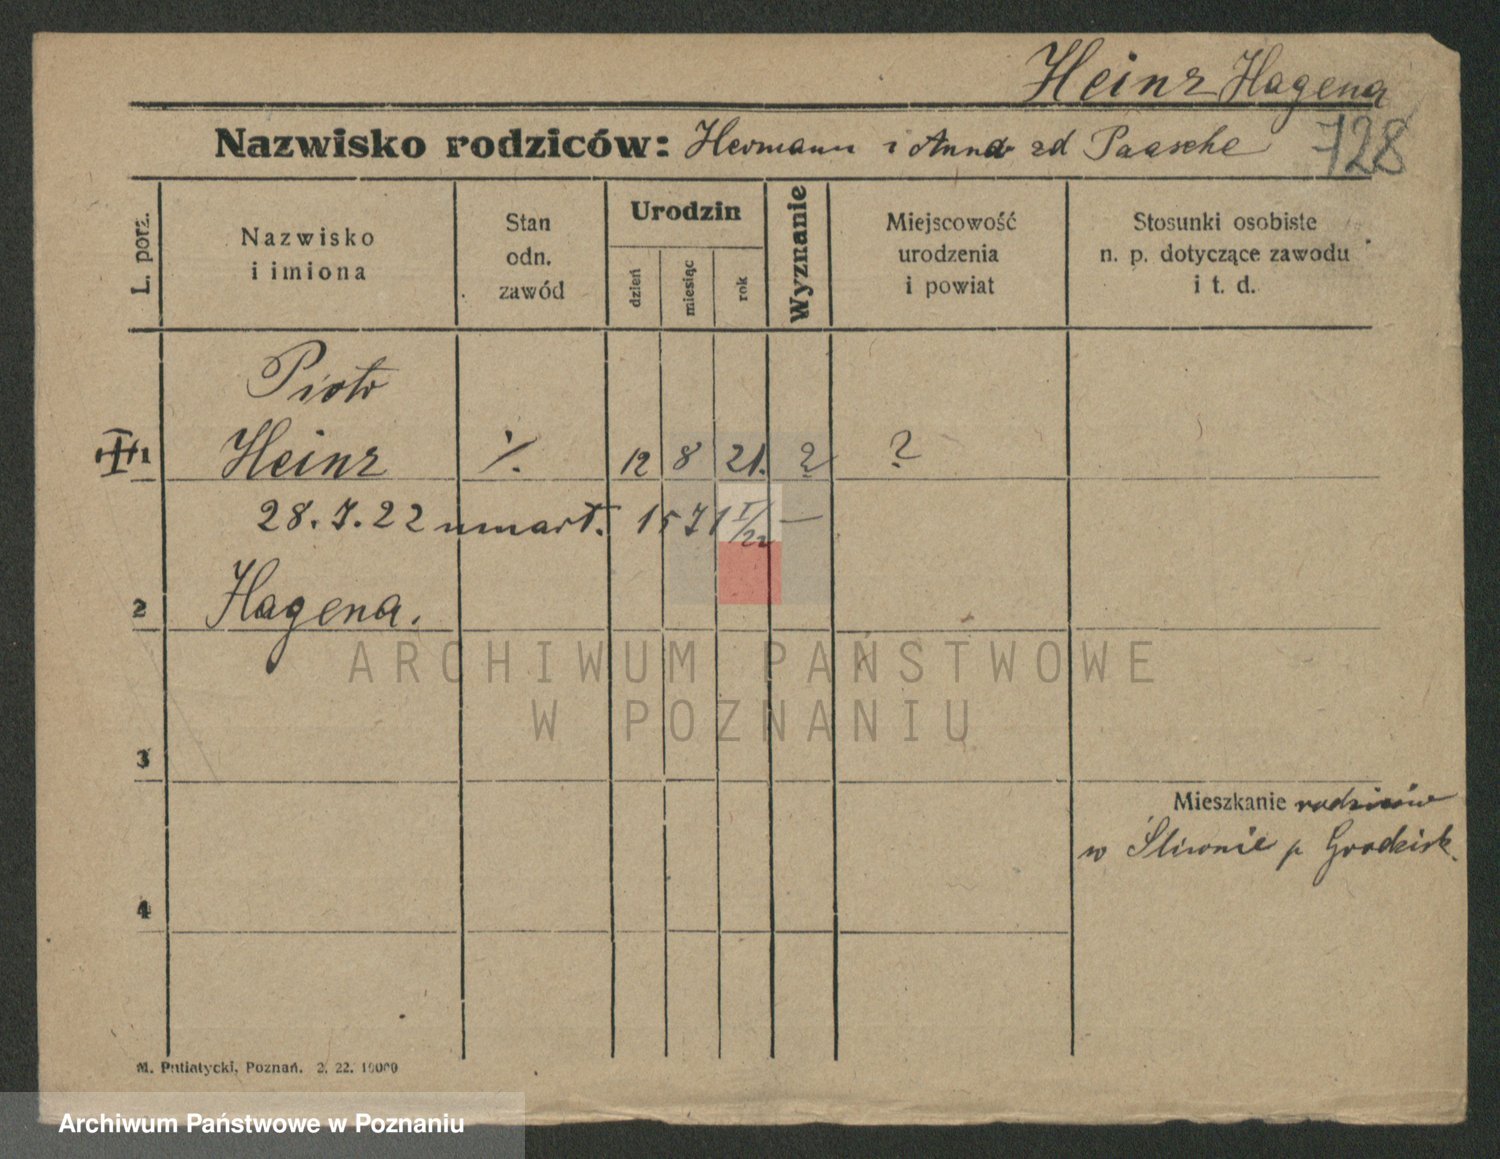 Heinz Hagena
Nazwisko rodziców: Hermann i Anna zd Paasche 728
L. porz.
Nazwisko
i imiona
Stan
odn.
zawód
Urodzin
dzień
miesiąc
rok
Wyznanie
Miejscowość
urodzenia
i powiat
Stosunki osobiste
n. p. dotyczące zawodu
i t. d.
Piotr
1 Heinz ./. 12 8 21. ? ?
28.7.22 umart. 15 71 I/22 —
2 Hagena.
ARCHIWUM PAŃSTWOWE
W POZNANIU
3
Mieszkanie rodziców
w Śliwnie p Grodzisk.
4
M. Putiatycki, Poznań. 2. 22. 10000
Archiwum Państwowe w Poznaniu